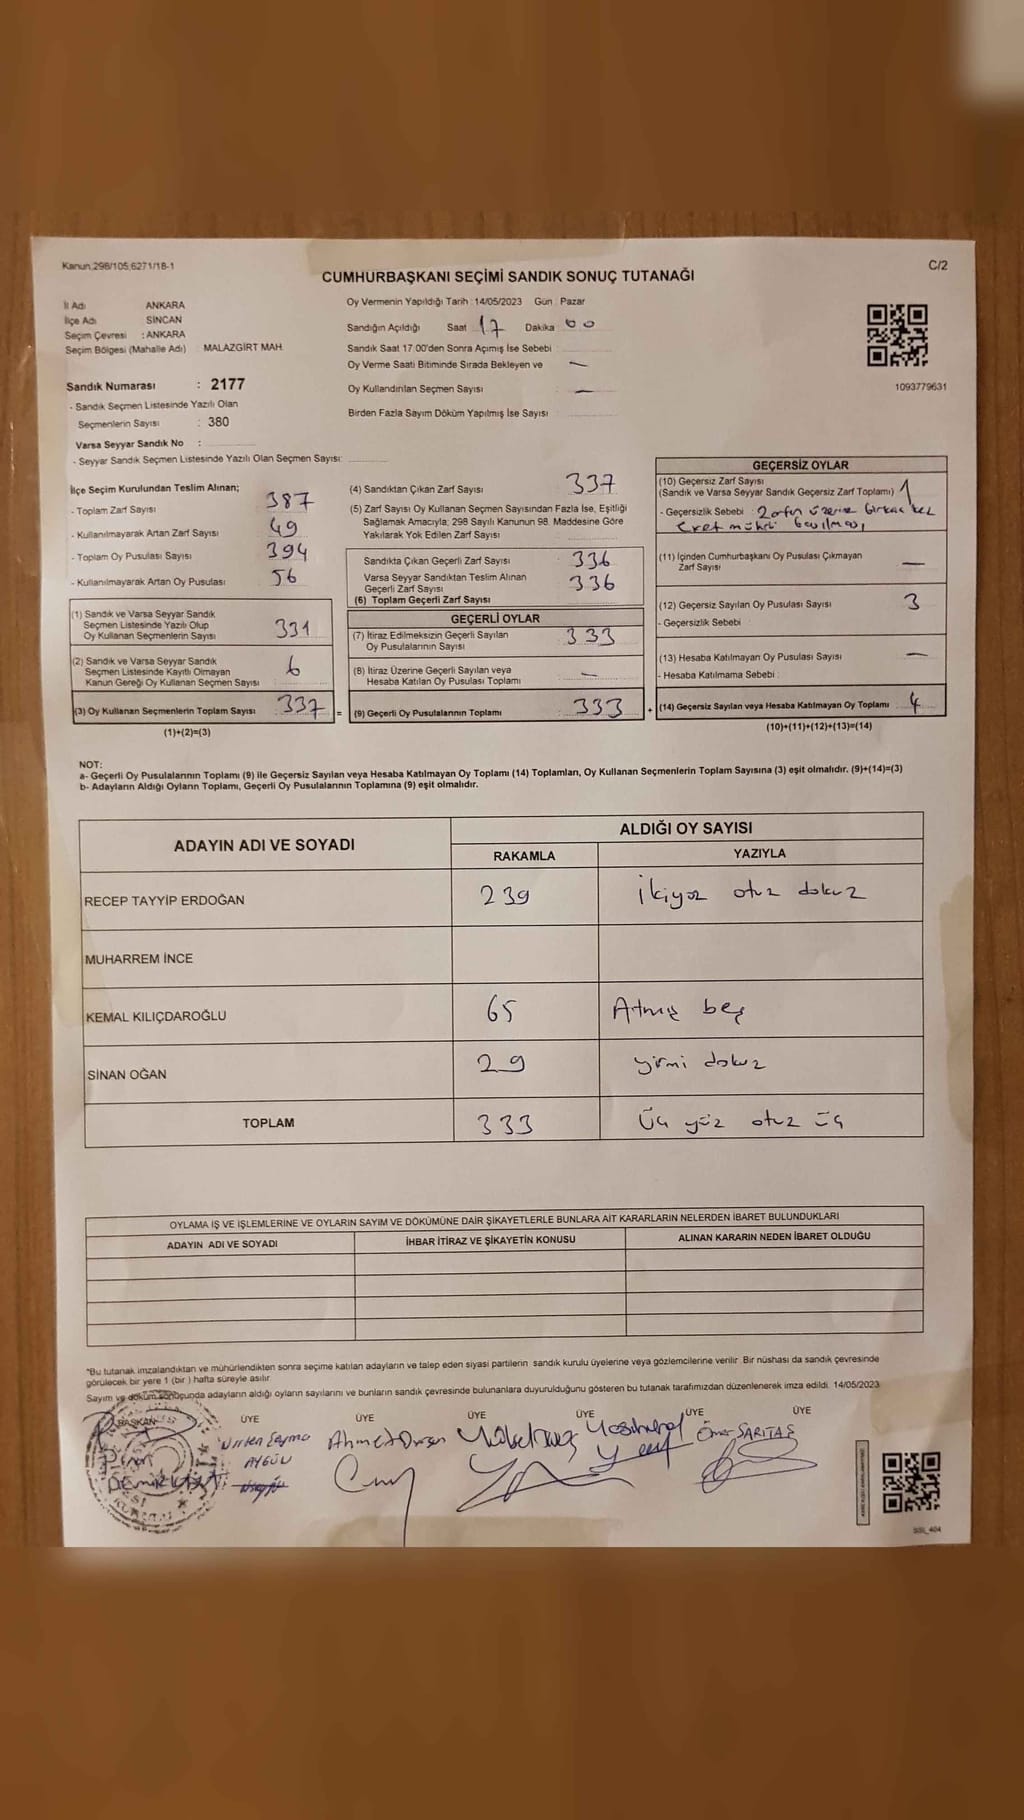 Kanun:298/105,6271/18-1
C/2
CUMHURBAŞKANI SEÇİMİ SANDIK SONUÇ TUTANAĞI
İl Adı ANKARA
İlçe Adı SİNCAN
Seçim Çevresi : ANKARA
Seçim Bölgesi (Mahalle Adı) : MALAZGİRT MAH.
Sandık Numarası : 2177
- Sandık Seçmen Listesinde Yazılı Olan
Seçmenlerin Sayısı : 380
Varsa Seyyar Sandık No :
- Seyyar Sandık Seçmen Listesinde Yazılı Olan Seçmen Sayısı:
Oy Vermenin Yapıldığı Tarih : 14/05/2023 Gün : Pazar
Sandığın Açıldığı Saat 17 Dakika 00
Sandık Saat 17.00'den Sonra Açımış İse Sebebi
Oy Verme Saati Bitiminde Sırada Bekleyen ve —
Oy Kullandırılan Seçmen Sayısı —
Birden Fazla Sayım Döküm Yapılmış İse Sayısı
1093779631
İlçe Seçim Kurulundan Teslim Alınan;
- Toplam Zarf Sayısı 387
- Kullanılmayarak Artan Zarf Sayısı 49
- Toplam Oy Pusulası Sayısı 394
- Kullanılmayarak Artan Oy Pusulası 56
(1) Sandık ve Varsa Seyyar Sandık
Seçmen Listesinde Yazılı Olup
Oy Kullanan Seçmenlerin Sayısı 331
(2) Sandık ve Varsa Seyyar Sandık
Seçmen Listesinde Kayıtlı Olmayan
Kanun Gereği Oy Kullanan Seçmen Sayısı 6
(3) Oy Kullanan Seçmenlerin Toplam Sayısı 337 =
(1)+(2)=(3)
(4) Sandıktan Çıkan Zarf Sayısı : 337
(5) Zarf Sayısı Oy Kullanan Seçmen Sayısından Fazla İse, Eşitliği
Sağlamak Amacıyla; 298 Sayılı Kanunun 98. Maddesine Göre
Yakılarak Yok Edilen Zarf Sayısı
Sandıkta Çıkan Geçerli Zarf Sayısı : 336
Varsa Seyyar Sandıktan Teslim Alınan
Geçerli Zarf Sayısı 336
(6) Toplam Geçerli Zarf Sayısı
GEÇERLİ OYLAR
(7) İtiraz Edilmeksizin Geçerli Sayılan
Oy Pusulalarının Sayısı 333
(8) İtiraz Üzerine Geçerli Sayılan veya
Hesaba Katılan Oy Pusulası Toplamı —
(9) Geçerli Oy Pusulalarının Toplamı 333 +
GEÇERSİZ OYLAR
(10) Geçersiz Zarf Sayısı
(Sandık ve Varsa Seyyar Sandık Geçersiz Zarf Toplamı) 1
- Geçersizlik Sebebi : Zarfın üzerine birkaç kez
Evet mührü basılması
(11) İçinden Cumhurbaşkanı Oy Pusulası Çıkmayan
Zarf Sayısı —
(12) Geçersiz Sayılan Oy Pusulası Sayısı 3
- Geçersizlik Sebebi :
(13) Hesaba Katılmayan Oy Pusulası Sayısı —
- Hesaba Katılmama Sebebi :
(14) Geçersiz Sayılan veya Hesaba Katılmayan Oy Toplamı : 4
(10)+(11)+(12)+(13)=(14)
NOT:
a- Geçerli Oy Pusulalarının Toplamı (9) ile Geçersiz Sayılan veya Hesaba Katılmayan Oy Toplamı (14) Toplamları, Oy Kullanan Seçmenlerin Toplam Sayısına (3) eşit olmalıdır. (9)+(14)=(3)
b- Adayların Aldığı Oyların Toplamı, Geçerli Oy Pusulalarının Toplamına (9) eşit olmalıdır.
ADAYIN ADI VE SOYADI
ALDIĞI OY SAYISI
RAKAMLA YAZIYLA
RECEP TAYYİP ERDOĞAN 239 İkiyüz otuz dokuz
MUHARREM İNCE
KEMAL KILIÇDAROĞLU 65 Atmış beş
SİNAN OĞAN 29 yirmi dokuz
TOPLAM 333 Üç yüz otuz üç
OYLAMA İŞ VE İŞLEMLERİNE VE OYLARIN SAYIM VE DÖKÜMÜNE DAİR ŞİKAYETLERLE BUNLARA AİT KARARLARIN NELERDEN İBARET BULUNDUKLARI
ADAYIN ADI VE SOYADI İHBAR İTİRAZ VE ŞİKAYETİN KONUSU ALINAN KARARIN NEDEN İBARET OLDUĞU
*Bu tutanak imzalandıktan ve mühürlendikten sonra seçime katılan adayların ve talep eden siyasi partilerin sandık kurulu üyelerine veya gözlemcilerine verilir. Bir nüshası da sandık çevresinde
görülecek bir yere 1 (bir ) hafta süreyle asılır.
Sayım ve döküm sonucunda adayların aldığı oyların sayılarını ve bunların sandık çevresinde bulunanlara duyurulduğunu gösteren bu tutanak tarafımızdan düzenlenerek imza edildi. 14/05/2023
BAŞKAN ÜYE ÜYE ÜYE ÜYE ÜYE ÜYE
Ahmet Dursun
AYGÜL
Ömer SARITAŞ
SSL_404